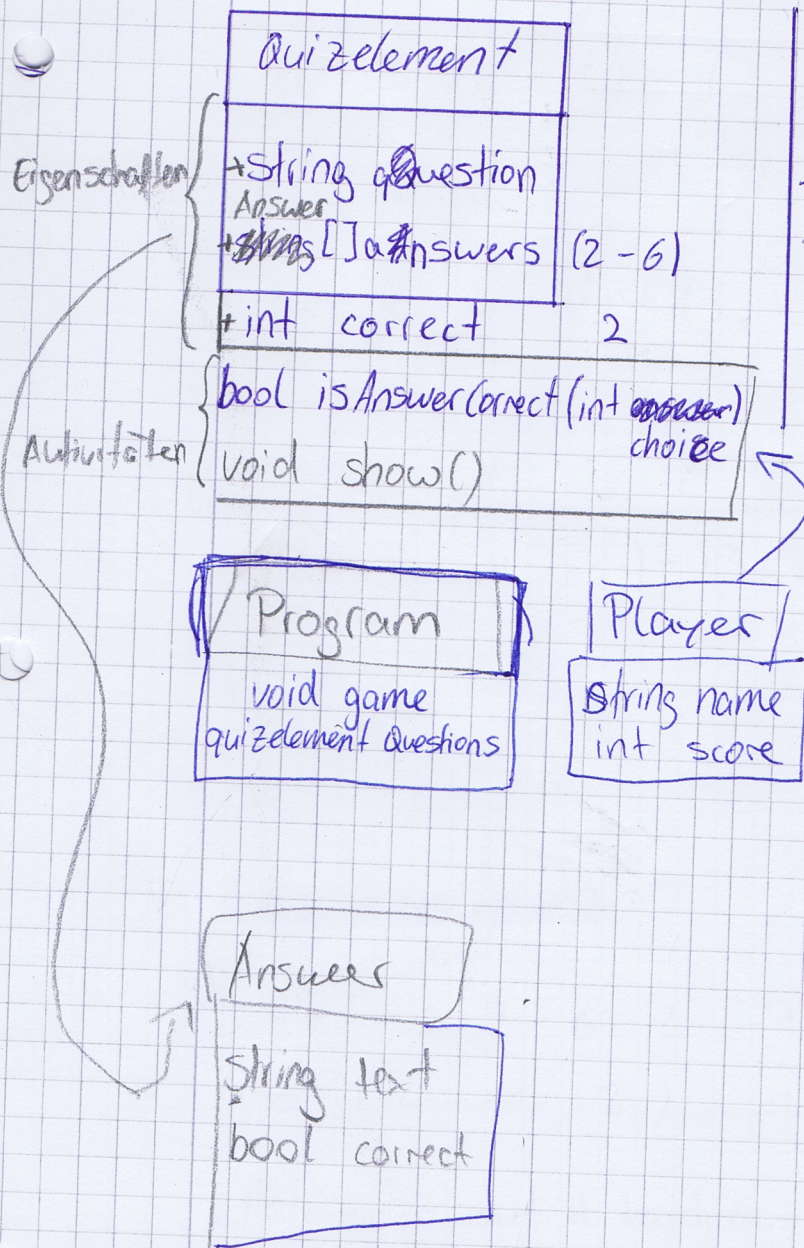 Quizelement
Eigenschaften
+ string question
Answer
+ [] answers (2-6)
+ int correct 2
Aktivitäten
bool isAnswerCorrect(int )
choice
void show()
Program
void game
quizelement Questions
Player
string name
int score
Answer
string text
bool correct